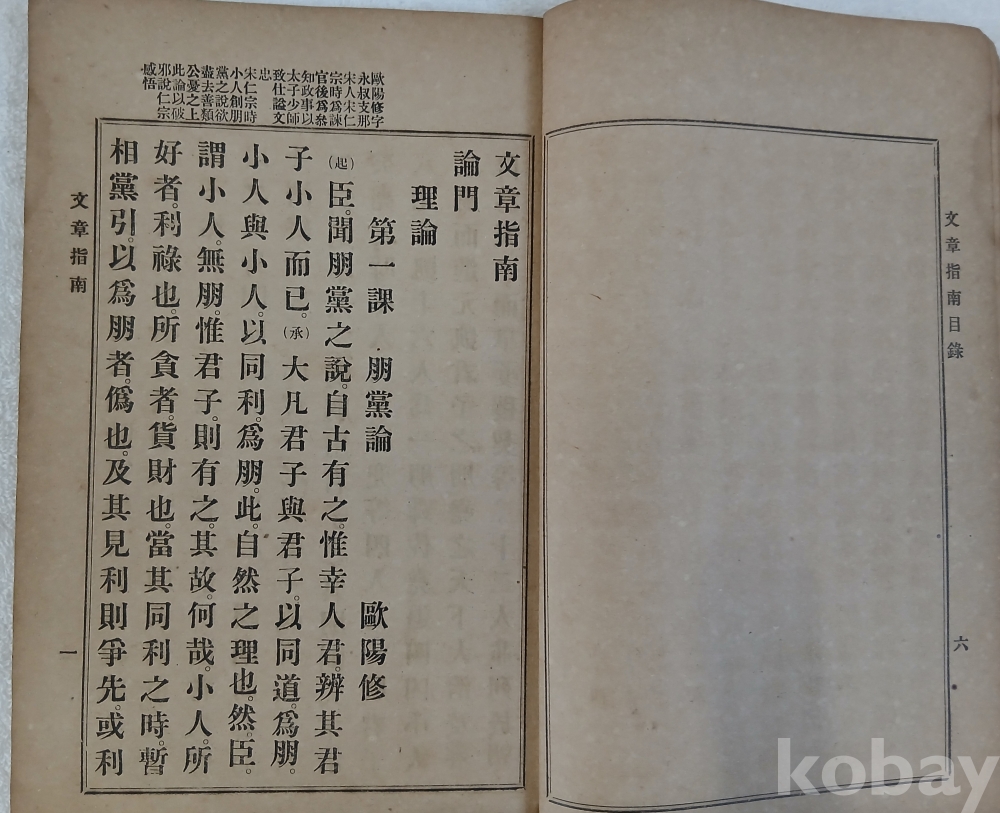 文章指南目錄
六
歐陽修字
永叔支那
宋人宋仁
宗時爲諫
官後爲叅
知政事以
太子少師
致仕諡文
忠
宋仁宗時
小人創朋
黨之說欲
盡去善類
公憂之上
此論以破
邪說仁宗
感悟
文章指南
論門
理論
第一課 朋黨論 歐陽修
(起)臣。聞朋黨之說。自古有之。惟幸人君。辨其君
子小人而已。(承)大凡君子與君子。以同道。爲朋。
小人與小人。以同利。爲朋。此。自然之理也。然。臣。
謂小人。無朋。惟君子。則有之。其故。何哉。小人。所
好者。利祿也。所貪者。貨財也。當其同利之時。暫
相黨引。以爲朋者。僞也。及其見利則爭先。或利
文章指南
一
kobay